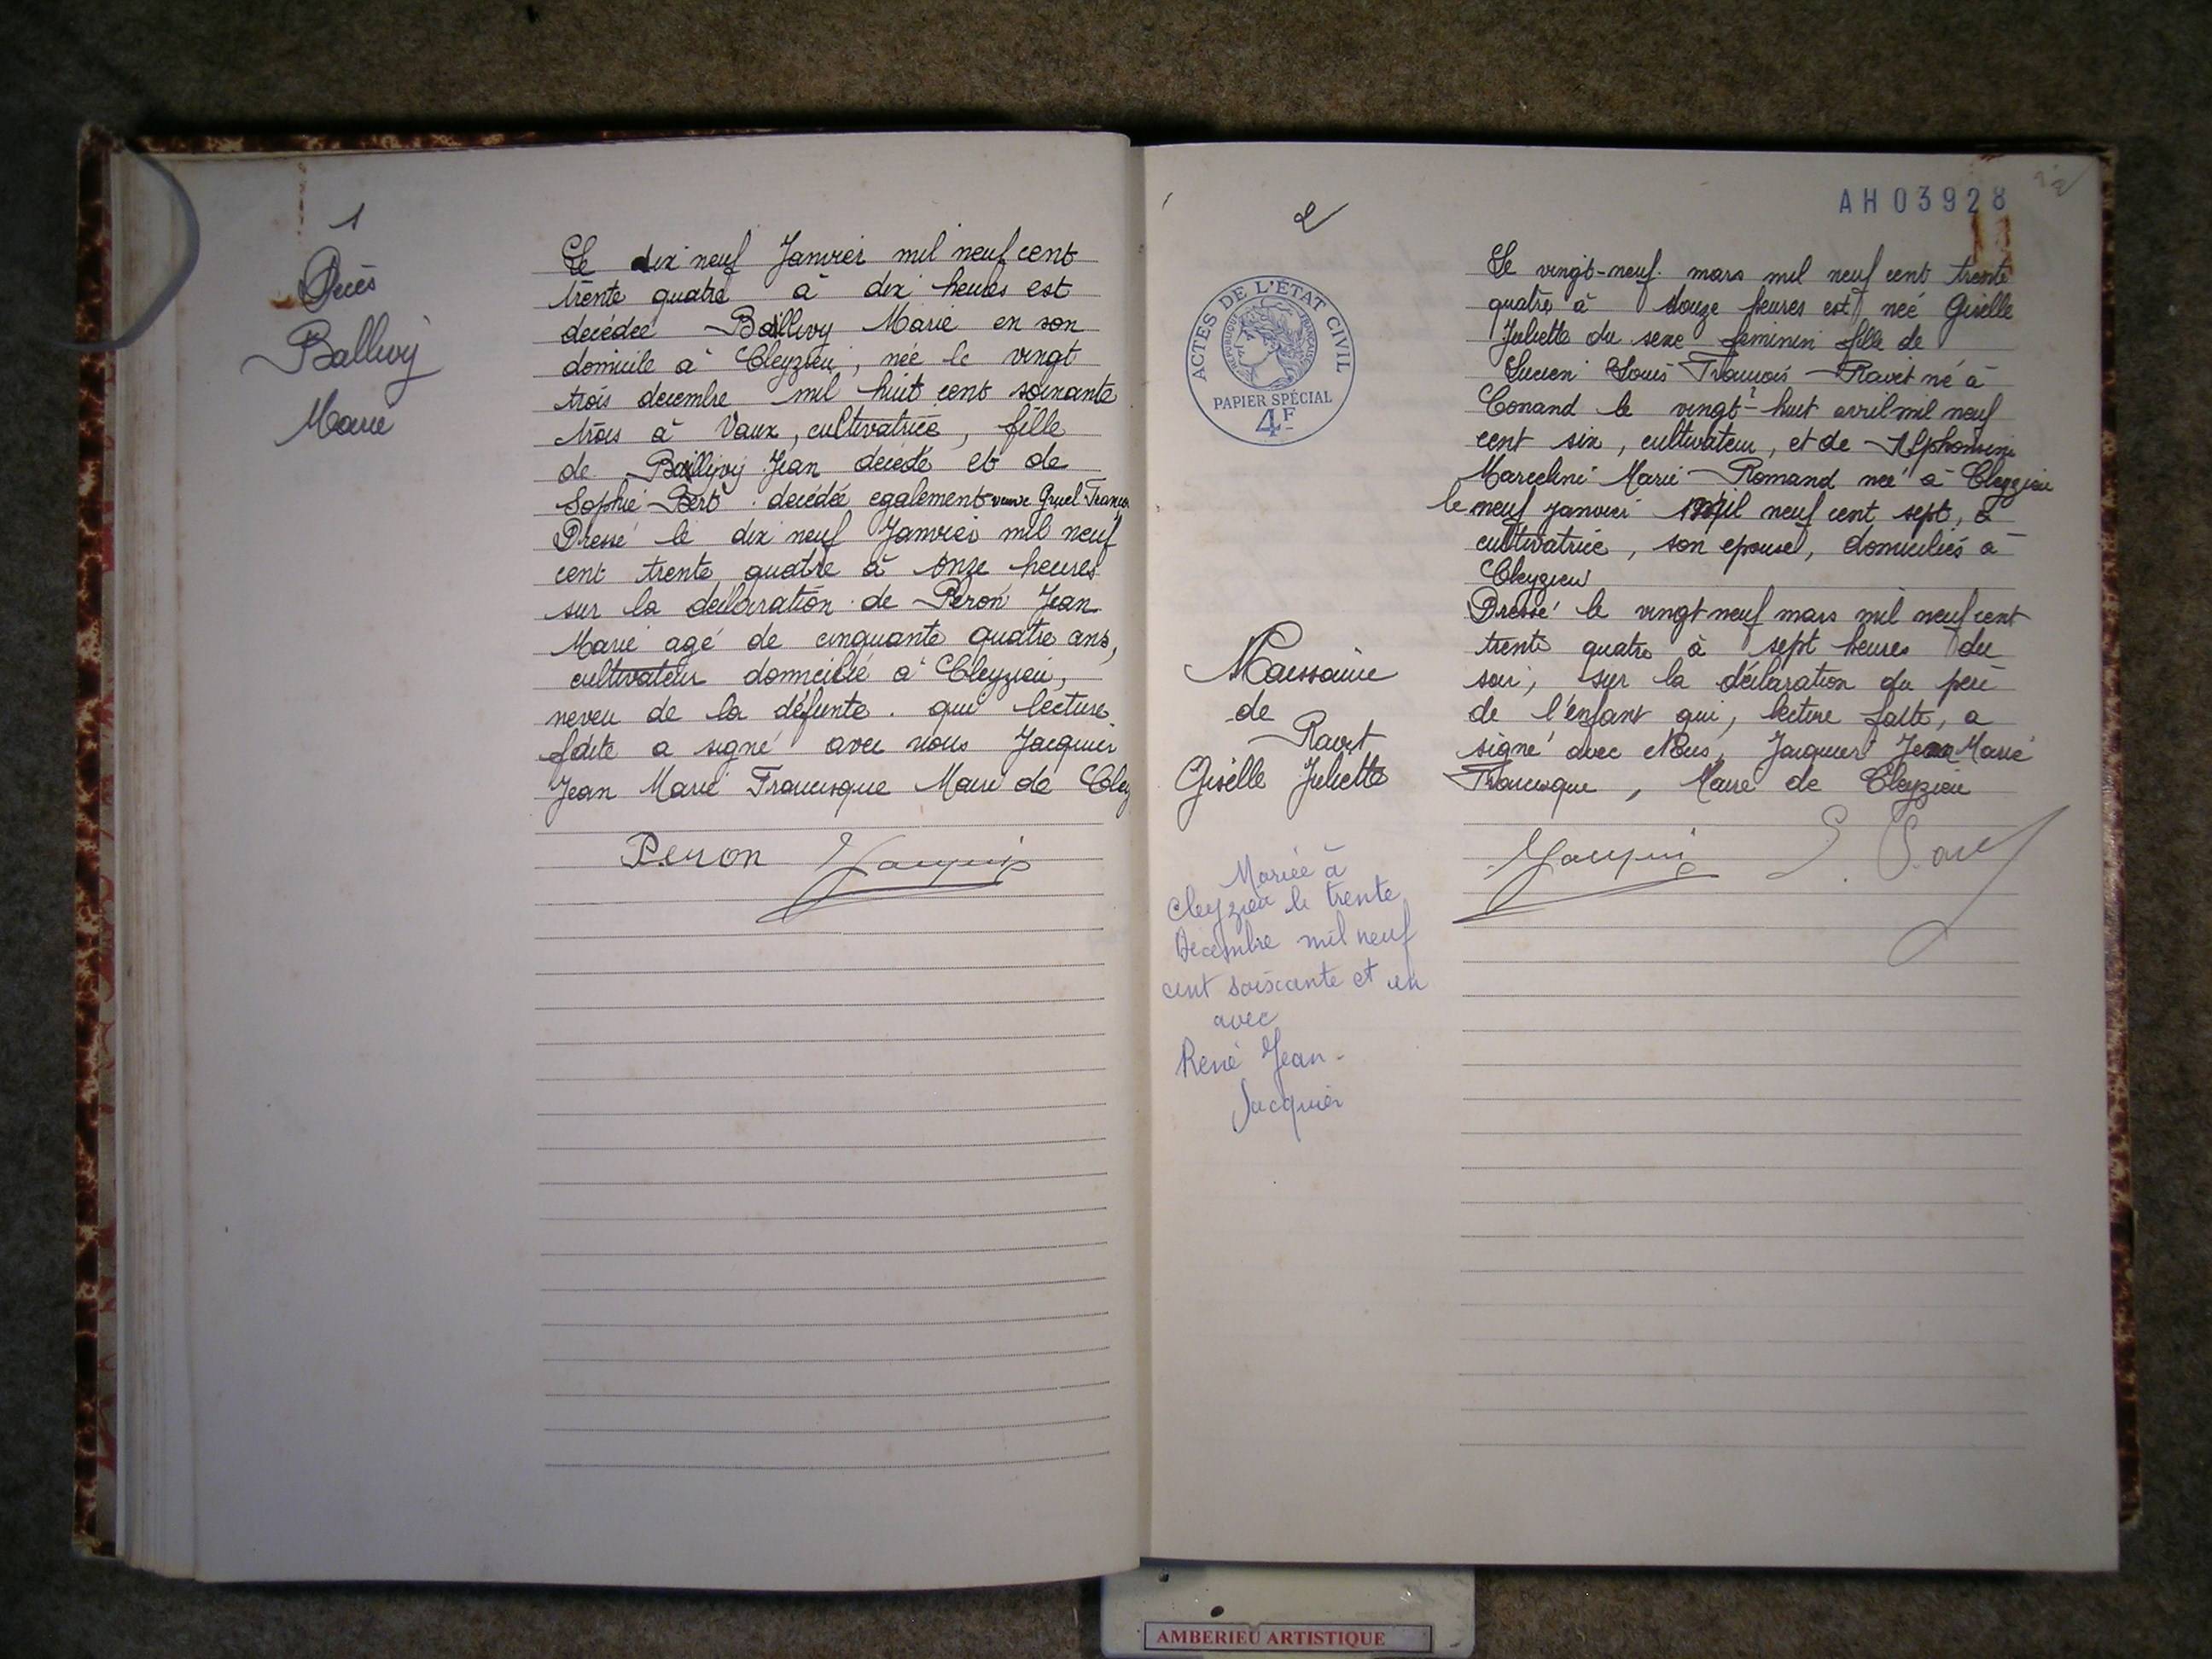 1
Décès
Ballivy
Marie
Le dix neuf Janvier mil neuf cent
trente quatre à dix heures est
decédée Ballivy Marie en son
domicile à Cleyzieu, née le vingt
trois decembre mil huit cent soixante
trois à Vaux, cultivatrice, fille
de Ballivy Jean decedé et de
Sophie Bert decédée egalement veuve Gruel
Dressé le dix neuf Janvier mil neuf
cent trente quatre à onze heures
sur la déclaration de Peron Jean
Marie agé de cinquante quatre ans,
cultivateur domicilié à Cleyzieu,
neveu de la défunte. qui lecture
faite a signé avec nous Jacquier
Jean Marie Francisque Maire de Cley
Peron Jacquier
2
ACTES DE L'ÉTAT CIVIL
RÉPUBLIQUE FRANÇAISE
PAPIER SPÉCIAL
4F
AH03928
Naissance
de
Ravet
Giselle Juliette
Mariée à
Cleyzieu le trente
Décembre mil neuf
cent soixante et un
avec
René Jean-
Jacquier
Le vingt-neuf mars mil neuf cent trente
quatre à douze heures est née Giselle
Juliette du sexe feminin fille de
Lucien Louis François Ravet né à
Conand le vingt-huit avril mil neuf
cent six, cultivateur, et de Alphonsine
Marceline Marie Romand née à Cleyzieu
le neuf janvier mil neuf cent sept,
cultivatrice, son epouse, domiciliés à
Cleyzieu
Dressé le vingt neuf mars mil neuf cent
trente quatre à sept heures du
soir, sur la déclaration du père
de l'enfant qui, lecture faite, a
signé avec Nous, Jacquier Jean Marie
Francisque, Maire de Cleyzieu
Jacquier
AMBERIEU ARTISTIQUE